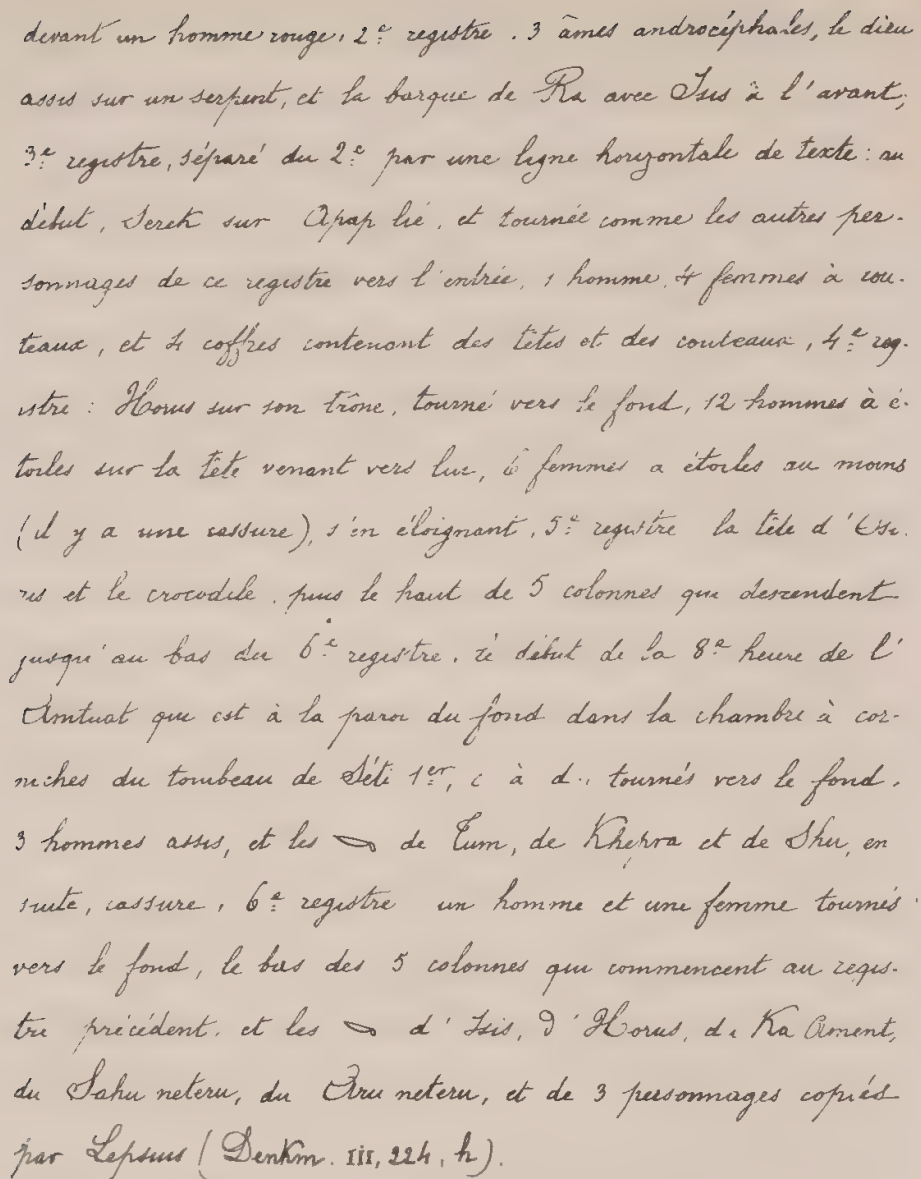 devant un homme rouge, 2e registre. 3 âmes androcéphales, le dieu
assis sur un serpent, et la barque de Ra avec Isis à l'avant;
3e registre, séparé du 2e par une ligne horizontale de texte: au
début, Serek sur Apap lié, et tournée comme les autres per-
sonnages de ce registre vers l'entrée, 1 homme, 4 femmes à cou-
teaux, et 4 coffres contenant des têtes et des couteaux, 4e reg-
istre: Horus sur son trône, tourné vers le fond, 12 hommes à é-
toiles sur la tête venant vers lui, 6 femmes a étoiles au moins
(il y a une cassure), s'en éloignant, 5e registre la tête d'Osi-
ris et le crocodile, puis le haut de 5 colonnes qui descendent
jusqu'au bas du 6e registre, le début de la 8e heure de l'
Amtuat qui est à la paroi du fond dans la chambre à cor-
niches du tombeau de Séti 1er, c à d. tournés vers le fond,
3 hommes assis, et les de Tum, de Khepra et de Shu, en
suite, cassure, 6e registre un homme et une femme tournés
vers le fond, le bas des 5 colonnes qui commencent au regis-
tre précédent, et les d'Isis, d'Horus, de Ka Ament,
du Sahu neteru, du Aru neteru, et de 3 personnages copiés
par Lepsius (Denkm. III, 224, h).